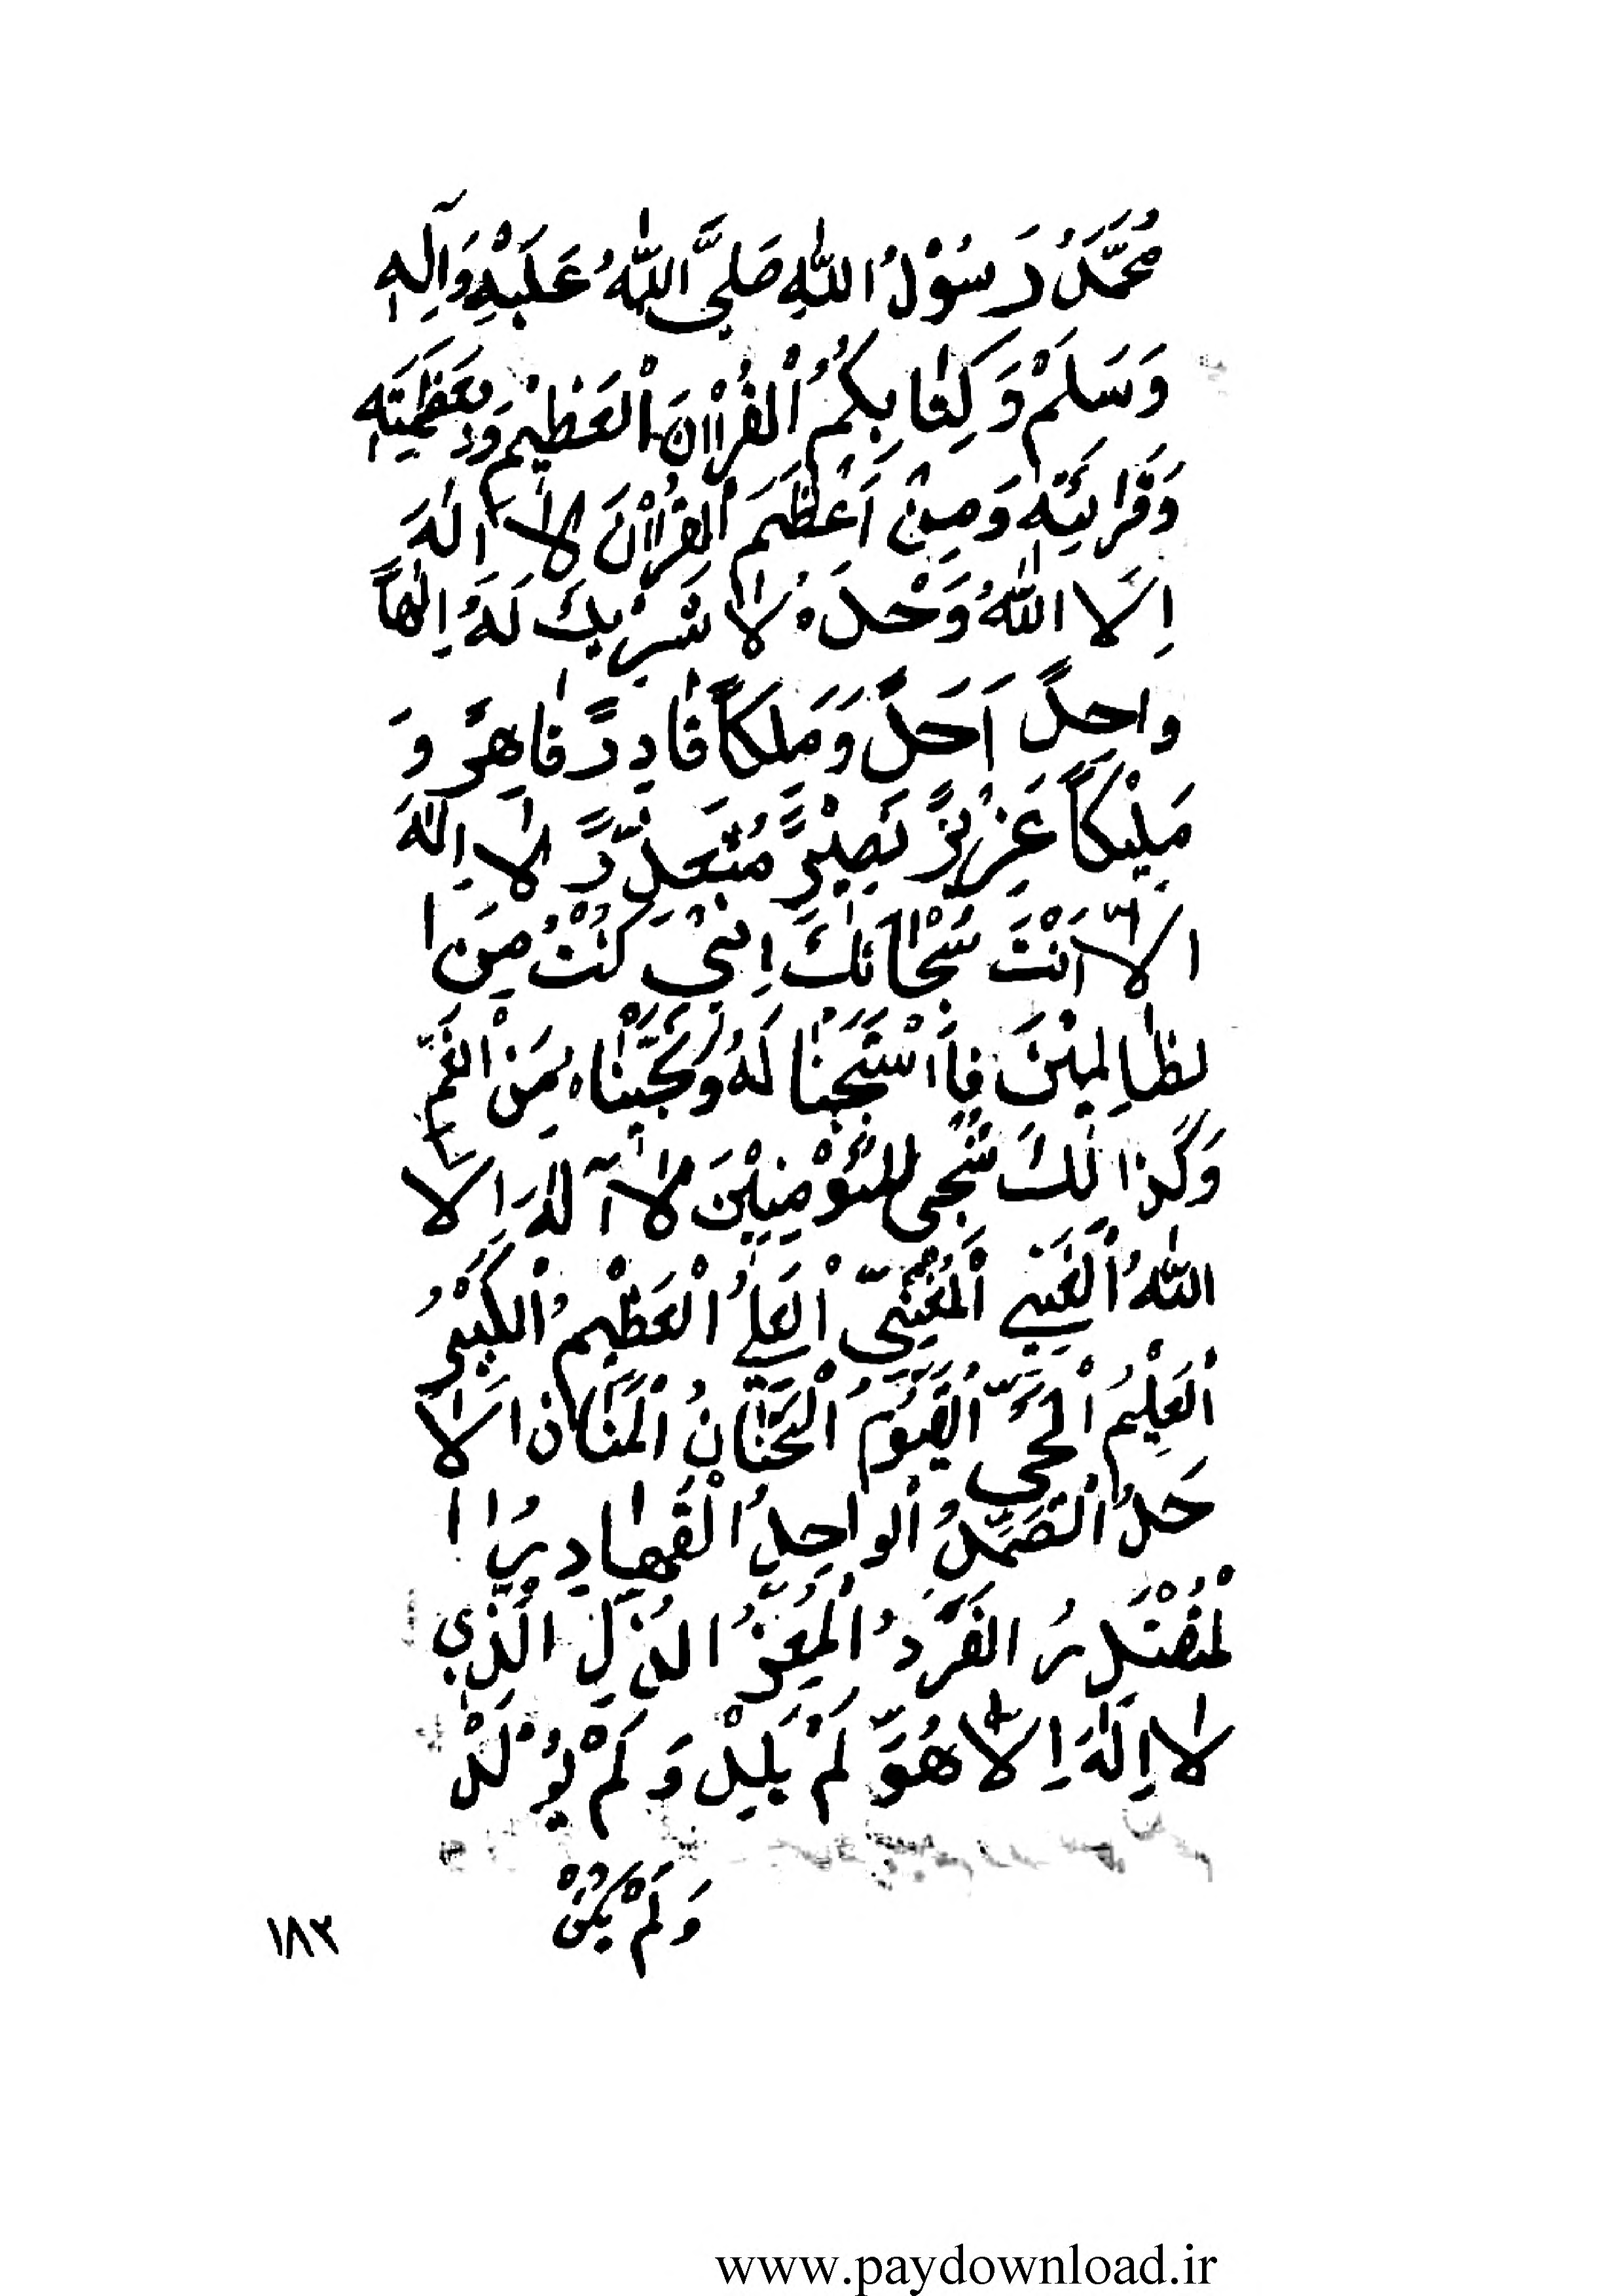 مُحَمَّدُ رَسُوْلُ اللّٰهِ صَلَّى اللّٰهُ عَلَيْهِ وَآلِهِ
وَسَلَمْ وَكِتٰابِكُمُ الْقُرْاٰنَ الْعَظِيْمِ وَبِعَظَمَتِهِ
وَقَرٰائَتِهِ وَمِنْ اَعْظَمَ الْقُرْاٰنَ لاٰ اِلٰهَ
اِلَا اللّٰهُ وَحْدَهُ لاٰ شَرْيكَ لَهُ اِلٰهاً
واحِدً اَحَدً وَمَلِكاً قٰادِرً قٰاهِرً وَ
مَلِيْكاً عَزِيْزً نَصِيْرً مُتَعَدِّدً لاٰ اِلٰهَ
الاّٰ اَنْتَ سُبْحٰانَكَ اِنىّْ كُنْتُ مِنَ ا
لظٰالِمِيْنَ فَأسْتَجَبْنٰا لَهُ وَنَجَّيْنٰاهُ مِنَ الْغَمّ
وَكَذٰالِكَ نُنْجِى الْمُؤْمِنِيْنَ لاٰ آلٰهَ اِلاٰ
اللّٰهُ الْغَنِي الْمُغْنِىّ الْعَلِيُ الْعَظْيمُ الْكَبْيرُ
الْعَلِيْمُ الْحَىُّ الْقَيّوُمُ الْحَنّٰانُ الْمَنّٰانُ الاَ
حَدُ الْصَمَدُ الواحِدُ الْقَهٰادِرُ ا
لْمُقْتَدِرُ الفَرْدُ الْمُعِزُّ المُذِلّ الَّذِي
لاٰ اِلٰهَ اِلاّٰ هُوَ لَمْ يَلِدْ وَ لَمْ يُوْلَدْ
وَ لَمْ يَكُنْ
١٨٢
www.paydownload.ir